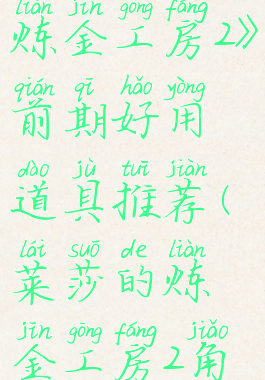 liàn jīn gōng fáng
炼金工房2》
qián qī hǎo yòng
前期好用
dào jù tuī jiàn
道具推荐(
lái suō de liàn
莱莎的炼
jīn gōng fáng jiǎo
金工房2角